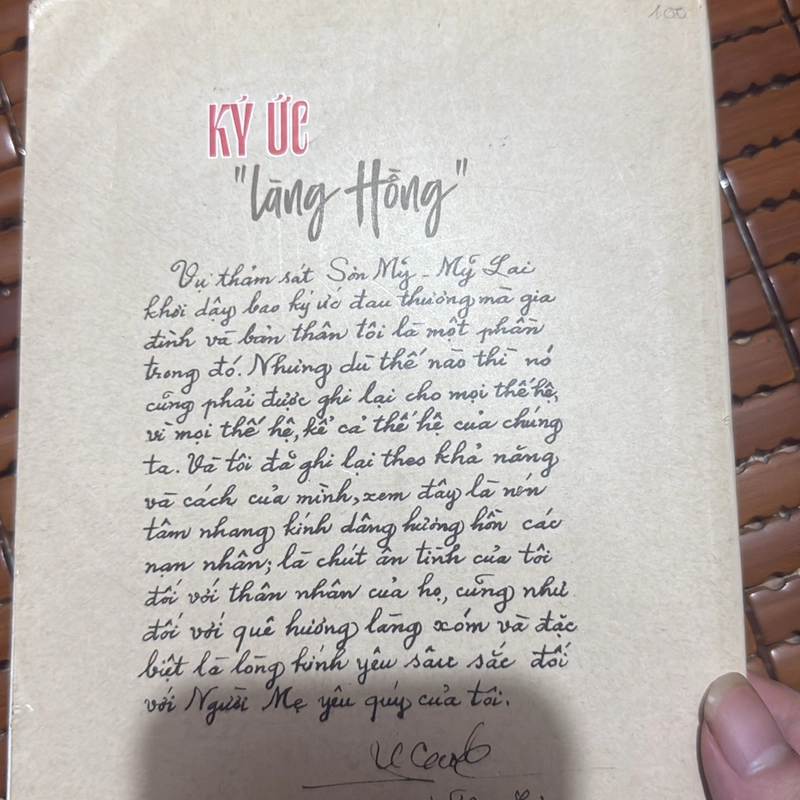 100
KÝ ỨC
"làng Hồng"
Vụ thảm sát Sơn Mỹ - Mỹ Lai
khơi dậy bao ký ức đau thương mà gia
đình và bản thân tôi là một phần
trong đó. Nhưng dù thế nào thì nó
cũng phải được ghi lại cho mọi thế hệ,
vì mọi thế hệ, kể cả thế hệ của chúng
ta. Và tôi đã ghi lại theo khả năng
và cách của mình, xem đây là nén
tâm nhang kính dâng hương hồn các
nạn nhân; là chút ân tình của tôi
đối với thân nhân của họ, cũng như
đối với quê hương làng xóm và đặc
biệt là lòng kính yêu sâu sắc đối
với Người Mẹ yêu quý của tôi.